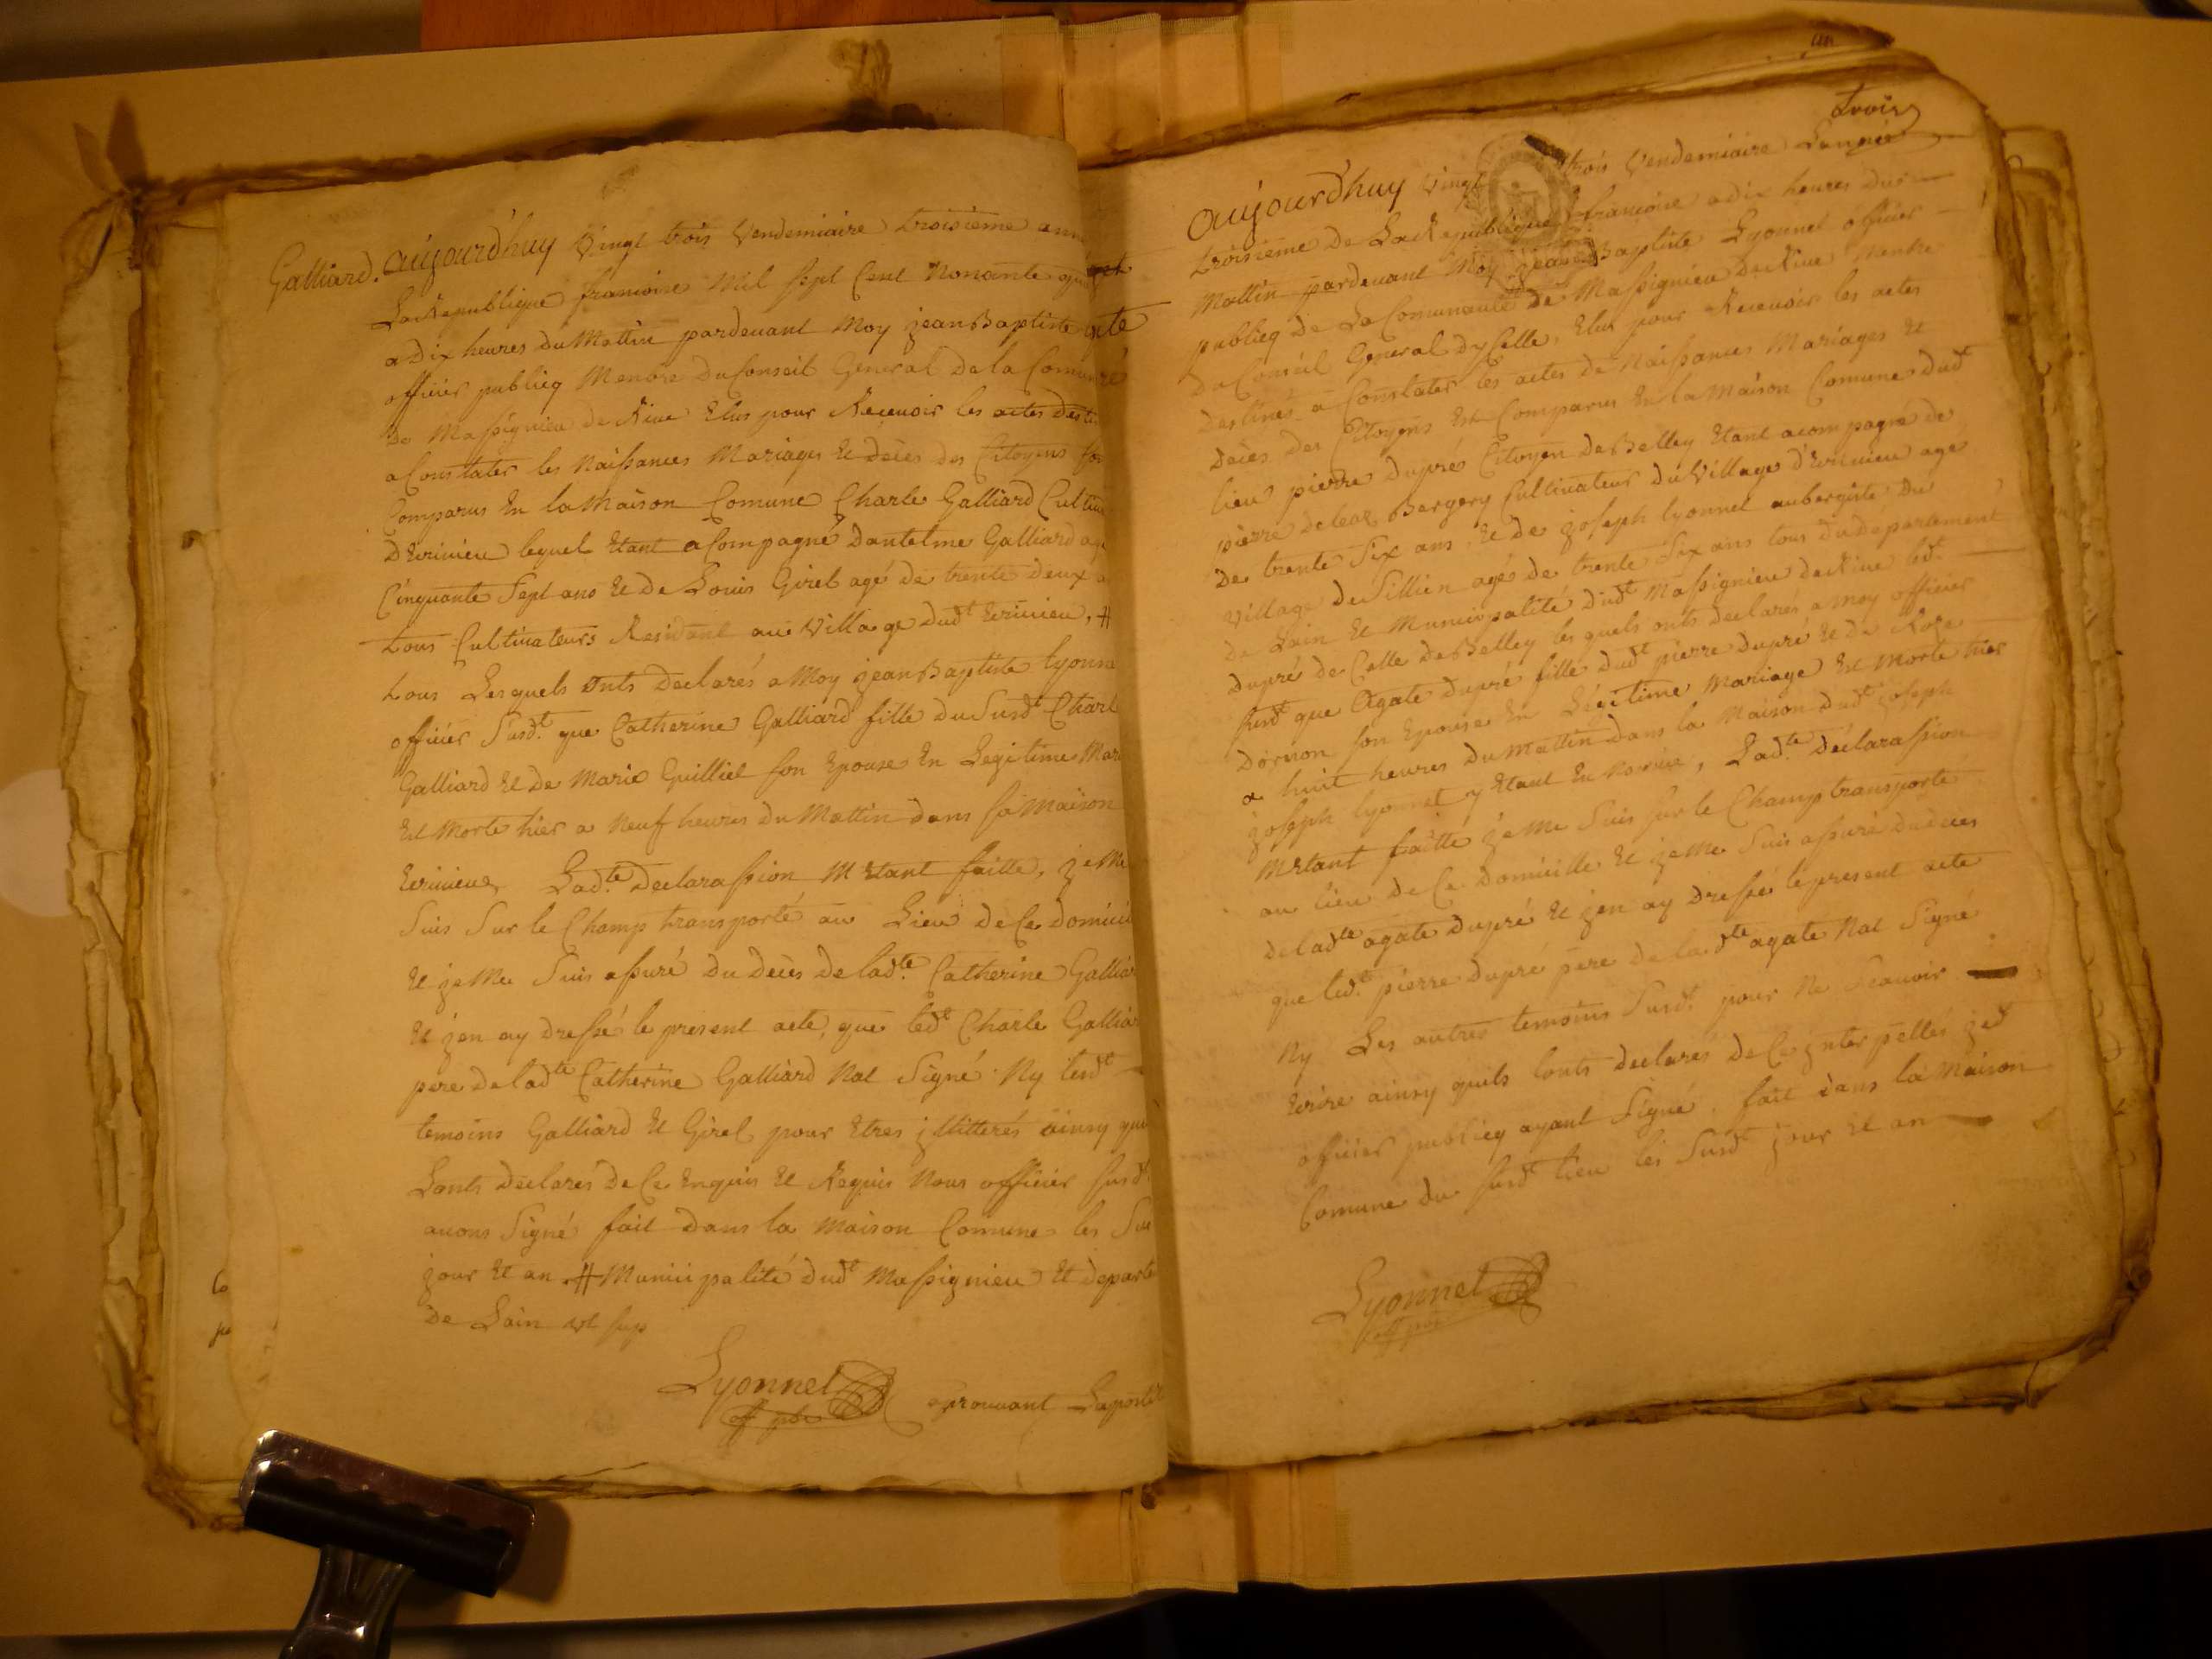 Galliard. aujourdhuy Vingt trois Vendemiaire troisieme ann
La Republique francoise Mil sept Cent Nonante
a Dix heures du Mattin pardevant Moy jean Baptiste
officier publicq Menbre du Conseil General de la Comun
De Massignieu de Rive Elus pour Recevoir les actes desti
a Constater les Naissances Mariages et deces des Citoyens
Comparus En la Maison Comune Charle Galliard Cultiva
D'Ecrivieu lequel Etant acompagné Dantelme Galliard agé
Cinquante Sept ans et de Louis Girel agé de trente deux a
tous Cultivateurs Residant au Village dudt Ecrivieu, #
tous Lesquels onts Declarés a Moy jean Baptiste lyonne
officier Susdt. que Catherine Galliard fille du Susdt Charl
Galliard et de Marie Guilliet son Epouse En Legitime Mar
Est Morte hier a Neuf heures du Mattin dans sa Maison
Ecrivieu, Ladte. Declarassion M Etant faitte, je Me
Suis Sur le Champ transporté au Lieu de Ce domici
et je Me Suis assuré du Deces de ladte. Catherine Galliar
et jen ay Dressé le present acte, que ledt Charle Galliar
pere de ladte Catherine Galliard Nat Signé Ny lesdt
temoins Galliard et Girel pour Etres jllitterés ainsy qu
Lonts declarés de Ce Enquis et Requis Nous officier susdt.
avons Signé fait dans la Maison Comune les Su
jour et an # Municipalité dudt Massignieu et departe
de Lain
Lyonnet
off pub aprouvant
trois
aujourdhuy Vingt trois Vendemiaire Lannée
troisieme De La Republique francoise a dix heures du
Mattin pardevant Moy jean Baptiste Lyonnet officier
publicq de La Comunauté de Massignieu de Rive Menbre
Du Conseil General dyselle, Elus pour Recevoir les actes
Destinés a Constater les actes de Naissances Mariages et
Deces des Citoyens Est Comparus En la Maison Comune dudt
lieu pierre dupré Citoyen de Belley Etant acompagné de
pierre Bergery Cultivateur du Village d'Ecrivieu age
De trente Six ans, et de joseph lyonnet aubergiste du
Village de Sillien agé de trente Six ans tous du departement
de Lain et Municipalité dudt Massignieu de Rive ledt.
dupré de Celle de Belley lesquels onts declarés a Moy officier
susdt que Agate dupré fille dudt pierre dupré et de Roze
Dornon son Epouse En Légitime Mariage Est Morte hier
a huit heures du Mattin dans la Maison dudt joseph
joseph lyonnet y Etant En Norrice, Ladte. déclarassion
M Etant faitte je Me Suis sur le Champ transporté
au lieu de Ce Domicille et je Me Suis assuré du deces
de ladte agate dupré et jen ay Dressé le present acte
que ledt. pierre dupré pere de ladte agate Nat Signé
Ny Les autres temoins Susdt. pour Ne Scavoir
Ecrire ainsy quils lonts declarés de Ce jnterpellés jedt
officier publicq ayant Signé. fait dans la Maison
Comune du susdt lieu les Susdt jour et an
Lyonnet
off pub